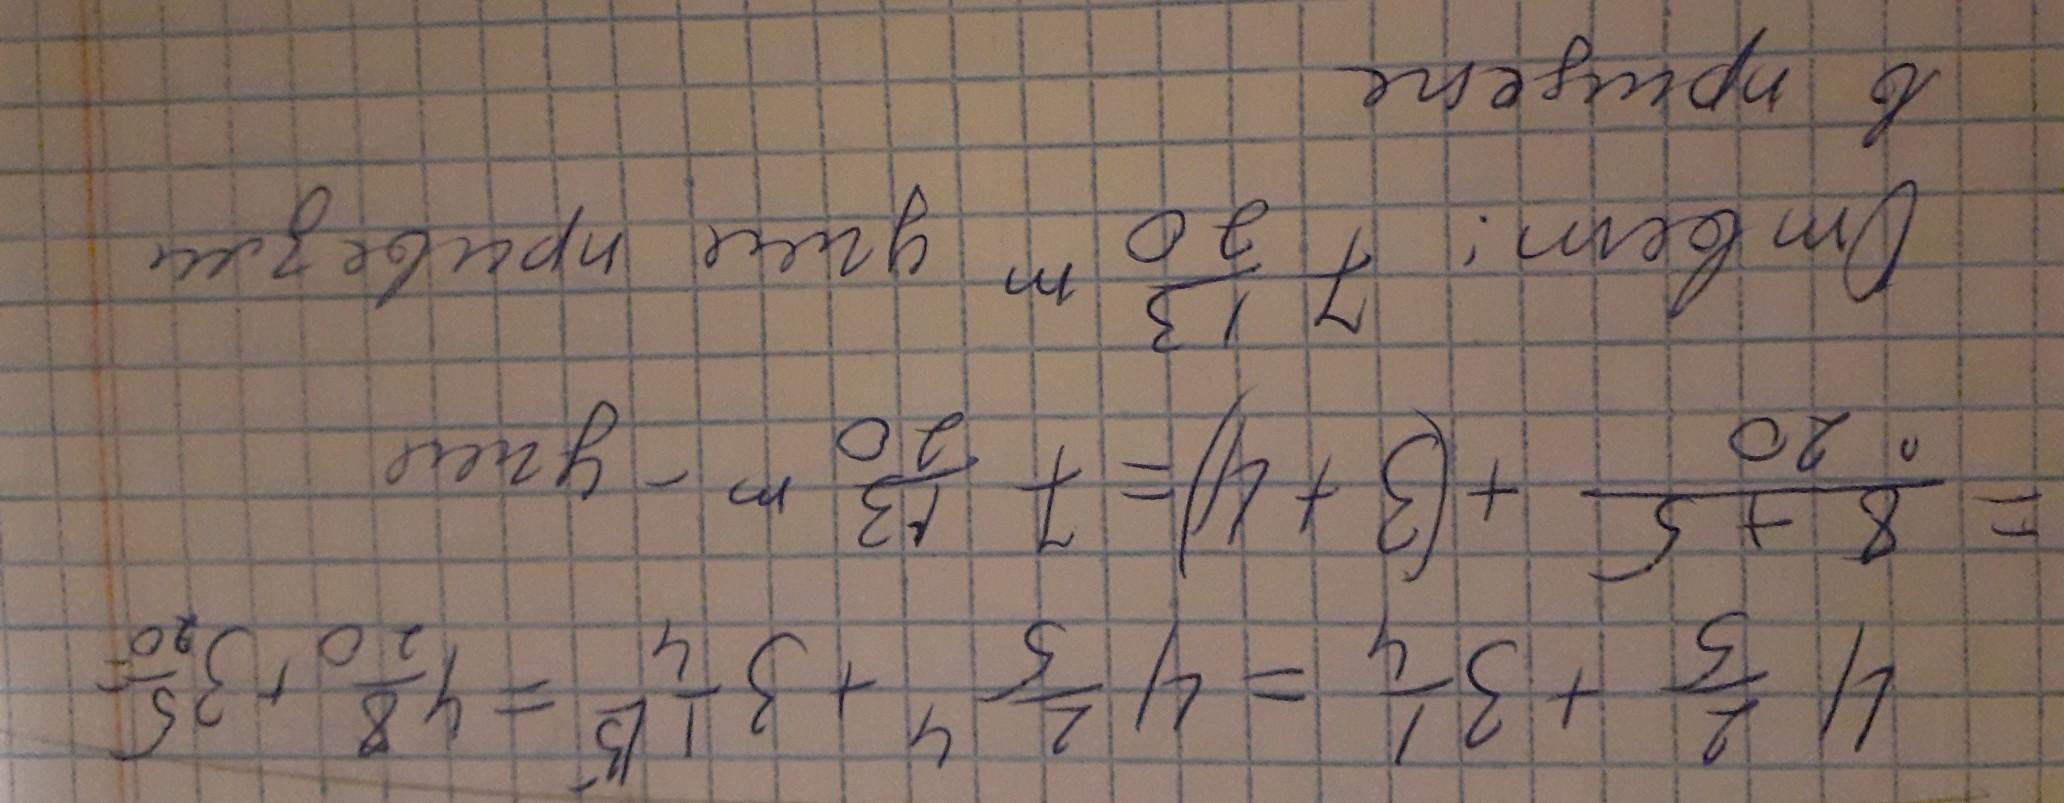 4 2/5 + 3 1/4 = 4 2/5 4 + 3 1/4 5 = 4 8/20 + 3 5/20 =
= 8 + 5/20 + (3 + 4) = 7 13/20 т - угля
Ответ: 7 13/20 т угля привезли
в прицепе